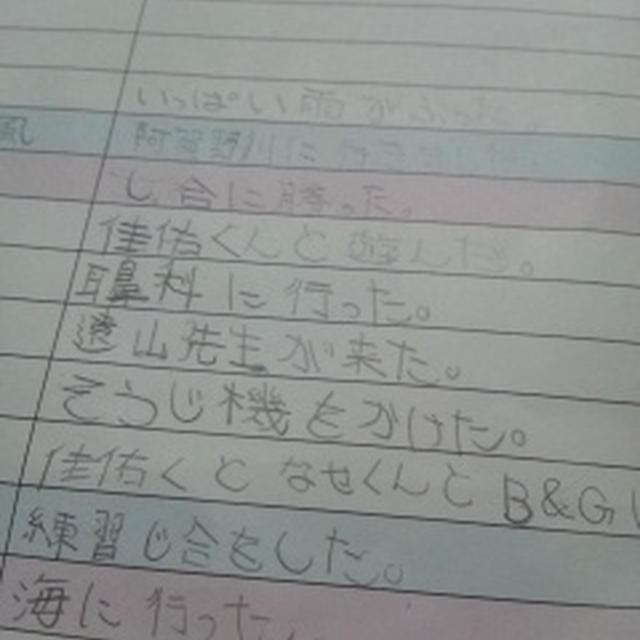 いっぱい雨がふった。
風 阿習野川に行きました。
し合に勝った。
佳佑くんと遊んだ。
耳鼻科に行った。
遠山先生が来た。
そうじ機をかけた。
佳佑くとなせくんとB&G
練習じ合をした。
海に行った。